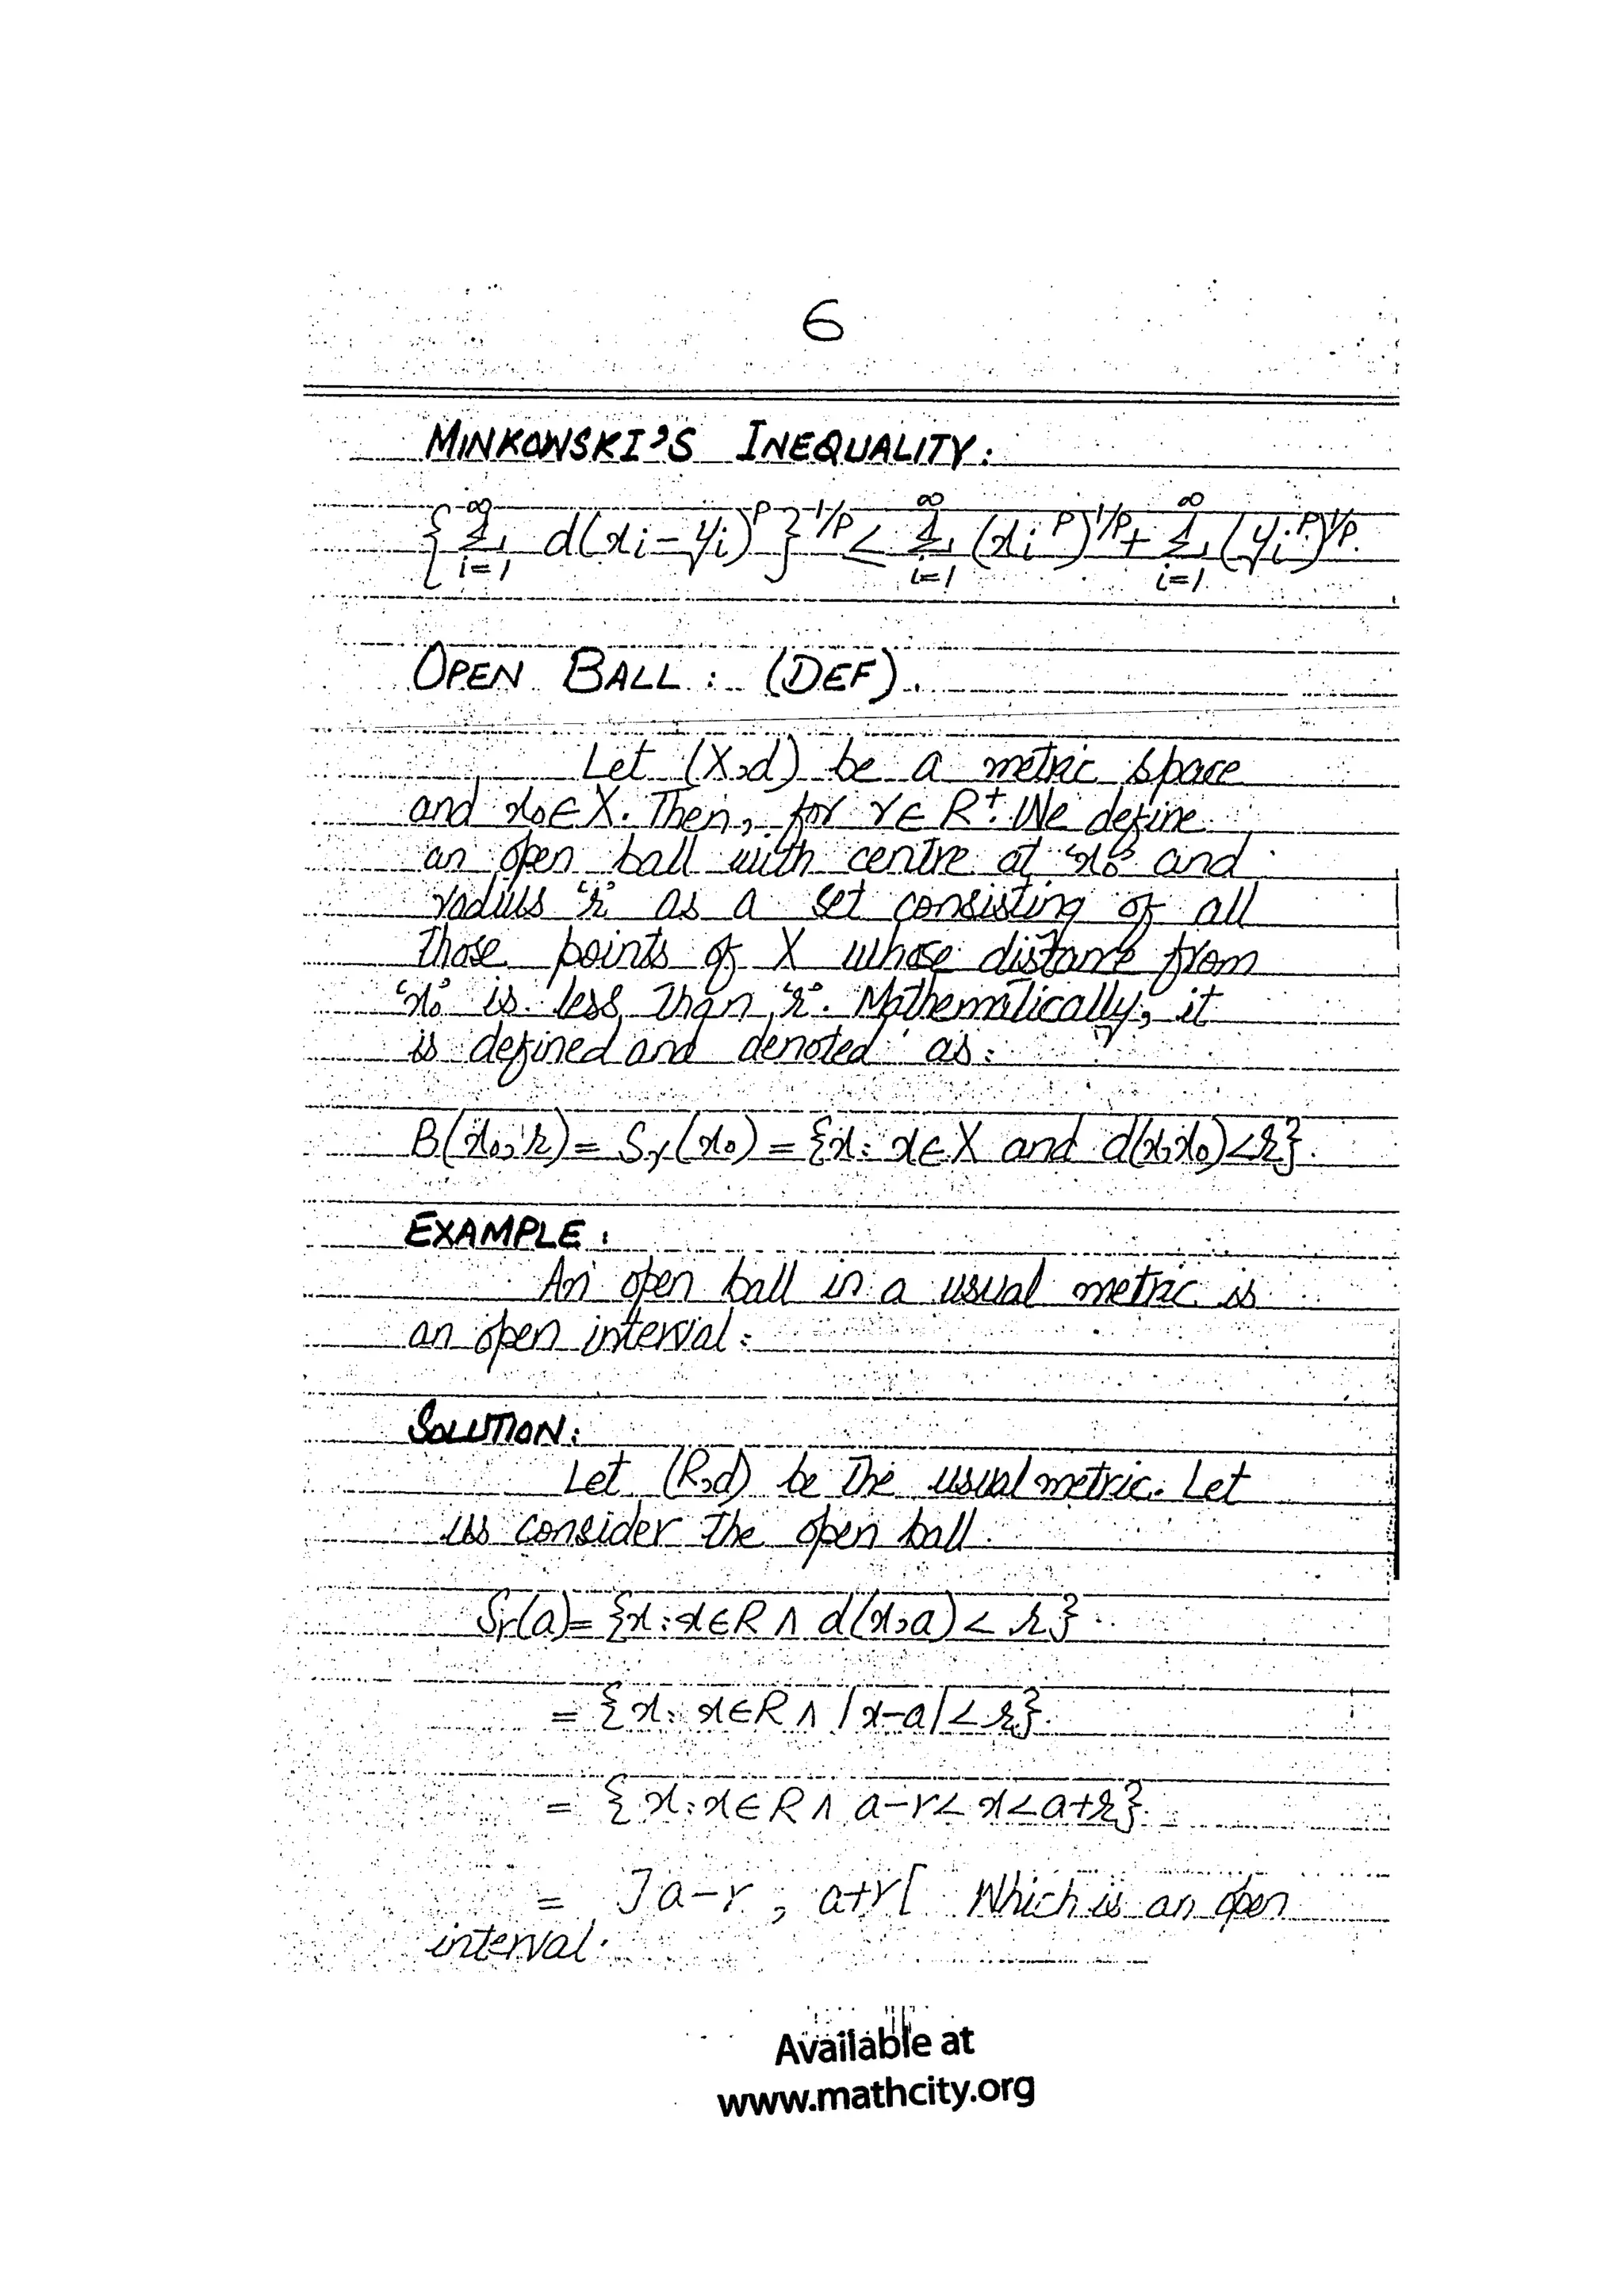 6
MINKOWSKI'S INEQUALITY:
{ ∞ Σ i=1 d(xi-yi)^p }^1/p < ∞ Σ i=1 (xi^p)^1/p + ∞ Σ i=1 (yi^p)^1/p.
OPEN BALL: (DEF).
Let (X,d) be a metric space
and x₀∈X. Then, for r∈R⁺. We define
an open ball with centre at 'x₀' and
radius 'r' as a set consisting of all
those points of X whose distance from
'x₀' is less than 'r'. Mathematically, it
is defined and denoted as:
B(x₀,r) = Sr(x₀) = {x: x∈X and d(x,x₀)<r}.
EXAMPLE:
An open ball in a usual metric is
an open interval:
SOLUTION:
Let (R,d) be the usual metric. Let
us consider the open ball.
Sr(a) = {x: x∈R ∧ d(x,a) < r}
= {x: x∈R ∧ |x-a| < r}.
= {x: x∈R ∧ a-r < x < a+r}.
= ]a-r , a+r[ Which is an open
interval.
Available at
www.mathcity.org